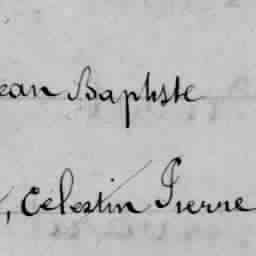 ean Baptiste
, Célestin Pierre